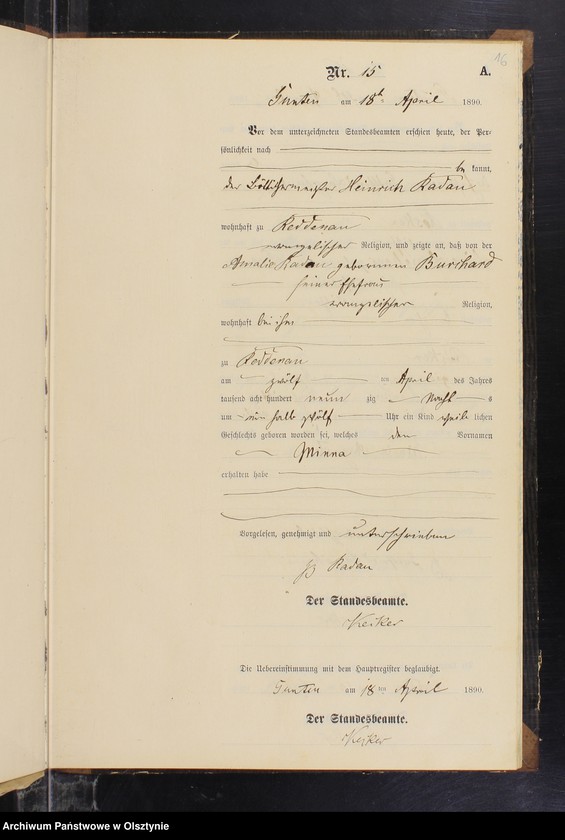 16
Nr. 15 A.
Tunten am 18t. April 1890.
Vor dem unterzeichneten Standesbeamten erschien heute, der Per-
sönlichkeit nach
be kannt,
der Böttchermeister Heinrich Radau
wohnhaft zu Reddenau
evangelischer Religion, und zeigte an, daß von der
Amalie Radau geborenen Burchard
seiner Ehefrau
evangelischer Religion,
wohnhaft bei ihm
zu Reddenau
am zwölf ten April des Jahres
tausend acht hundert neun zig Nacht s
um ein halb zwölf Uhr ein Kind weib lichen
Geschlechts geboren worden sei, welches den Vornamen
Minna
erhalten habe
Vorgelesen, genehmigt und unterschrieben
gz Radau
Der Standesbeamte.
Keiker
Die Uebereinstimmung mit dem Hauptregister beglaubigt.
Tunten am 18ten April 1890.
Der Standesbeamte.
Keiker
Archiwum Państwowe w Olsztynie